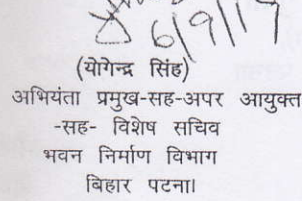 6/9/19
(योगेन्द्र सिंह)
अभियंता प्रमुख-सह-अपर आयुक्त
-सह- विशेष सचिव
भवन निर्माण विभाग
बिहार पटना।